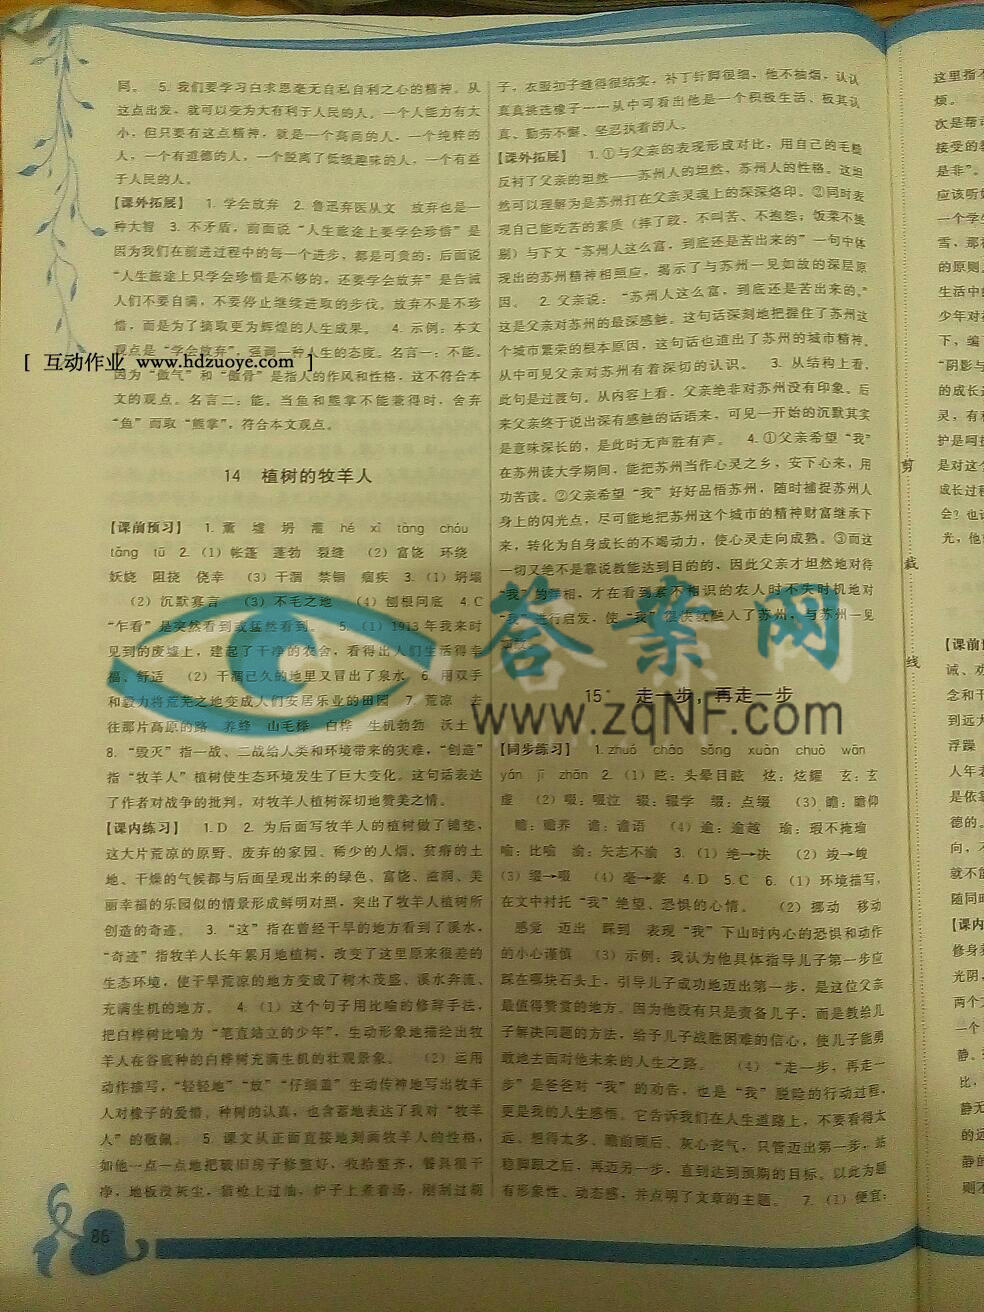 同。 5. 我们要学习白求恩毫无自私自利之心的精神。从
这点出发，就可以变为大有利于人民的人。一个人能力有大
小，但只要有这点精神，就是一个高尚的人，一个纯粹的
人，一个有道德的人，一个脱离了低级趣味的人，一个有益
于人民的人。
【课外拓展】 1. 学会放弃 2. 鲁迅弃医从文 放弃也是一
种大智 3. 不矛盾，前面说“人生旅途上要学会珍惜”是
因为我们在前进过程中的每一个进步，都是可贵的；后面说
“人生旅途上只学会珍惜是不够的，还要学会放弃”是告诫
人们不要自满，不要停止继续进取的步伐。放弃不是不珍
惜，而是为了摘取更为辉煌的人生成果。 4. 示例：本文
观点是“学会放弃”，强调一种人生的态度。名言一：不能。
[ 互动作业 www.hdzuoye.com ]
因为“傲气”和“傲骨”是指人的作风和性格，这不符合本
文的观点。名言二：能。当鱼和熊掌不能兼得时，舍弃
“鱼”而取“熊掌”，符合本文观点。
14 植树的牧羊人
【课前预习】 1. 薰 墟 坍 灌 hé xī tàng chóu
tāng tū 2.（1）帐篷 蓬勃 裂缝 （2）富饶 环绕
妖娆 阻挠 侥幸 （3）干涸 禁锢 痼疾 3.（1）坍塌
（2）沉默寡言 （3）不毛之地 （4）刨根问底 4. C
“乍看”是突然看到或猛然看到。 5.（1）1913年我来时
见到的废墟上，建起了干净的农舍，看得出人们生活得幸
福、舒适 （2）干涸已久的地里又冒出了泉水 6. 用双手
和毅力将荒芜之地变成人们安居乐业的田园 7. 荒凉 去
往那片高原的路 养蜂 山毛榉 白桦 生机勃勃 沃土
8. “毁灭”指一战、二战给人类和环境带来的灾难，“创造”
指“牧羊人”植树使生态环境发生了巨大变化。这句话表达
了作者对战争的批判，对牧羊人植树深切地赞美之情。
【课内练习】 1. D 2. 为后面写牧羊人的植树做了铺垫，
这大片荒凉的原野、废弃的家园、稀少的人烟、贫瘠的土
地、干燥的气候都与后面呈现出来的绿色、富饶、滋润、美
丽幸福的乐园似的情景形成鲜明对照，突出了牧羊人植树所
创造的奇迹。 3. “这”指在曾经干旱的地方看到了溪水，
“奇迹”指牧羊人长年累月地植树，改变了这里原来很差的
生态环境，使干旱荒凉的地方变成了树木茂盛、溪水奔流、
充满生机的地方。 4.（1）这个句子用比喻的修辞手法，
把白桦树比喻为“笔直站立的少年”，生动形象地描绘出牧
羊人在谷底种的白桦树充满生机的壮观景象。 （2）运用
动作描写，“轻轻地”“放”“仔细盖”生动传神地写出牧羊
人对橡子的爱惜、种树的认真，也含蓄地表达了我对“牧羊
人”的敬佩。 5. 课文从正面直接地刻画牧羊人的性格，
如他一点一点地把破旧房子修整好，收拾整齐，餐具很干
净，地板没灰尘，猎枪上过油，炉子上煮着汤，刚刮过胡
86
子，衣服扣子缝得很结实，补丁针脚很细，他不抽烟，认认
真真挑选橡子——从中可看出他是一个积极生活、极其认
真、勤劳不懈、坚忍执着的人。
【课外拓展】 1. ①与父亲的表现形成对比，用自己的毛糙
反衬了父亲的坦然——苏州人的坦然，苏州人的性格。这坦
然可以理解为是苏州打在父亲灵魂上的深深烙印。②同时表
现自己能吃苦的素质（摔了跤，不叫苦、不抱怨；饭菜不挑
剔）与下文“苏州人这么富，到底还是苦出来的”一句中体
现出的苏州精神相照应，揭示了与苏州一见如故的深层原
因。 2. 父亲说：“苏州人这么富，到底还是苦出来的。”
这是父亲对苏州的最深感触。这句话深刻地把握住了苏州这
个城市繁荣的根本原因，这句话也道出了苏州的城市精神。
从中可见父亲对苏州有着深切的认识。 3. 从结构上看，
此句是过渡句。从内容上看，父亲绝非对苏州没有印象。后
来父亲终于说出深有感触的话语来，可见一开始的沉默其实
是意味深长的，是此时无声胜有声。 4. ①父亲希望“我”
在苏州读大学期间，能把苏州当作心灵之乡，安下心来，用
功苦读。②父亲希望“我”好好品悟苏州，随时捕捉苏州人
身上的闪光点，尽可能地把苏州这个城市的精神财富继承下
来，转化为自身成长的不竭动力，使心灵走向成熟。③而这
一切又绝不是靠说教能达到目的的，因此父亲才坦然地对待
“我”的洋相，才在看到素不相识的农人时不失时机地对
“我”进行启发，使“我”很快就融入了苏州，与苏州一见
如故。
15 走一步，再走一步
【同步练习】 1. zhuó cháo sǒng xuàn chuò wān
yán jī zhān 2.（1）眩：头晕目眩 炫：炫耀 玄：玄
虚 （2）啜：啜泣 辍：辍学 缀：点缀 （3）瞻：瞻仰
赡：赡养 谵：谵语 （4）逾：逾越 瑜：瑕不掩瑜
喻：比喻 渝：矢志不渝 3.（1）绝→决 （2）竣→峻
（3）缀→啜 （4）毫→豪 4. D 5. C 6.（1）环境描写，
在文中衬托“我”绝望、恐惧的心情。 （2）挪动 移动
感觉 迈出 踩到 表现“我”下山时内心的恐惧和动作
的小心谨慎 （3）示例：我认为他具体指导儿子第一步应
踩在哪块石头上，引导儿子成功地迈出第一步，是这位父亲
最值得赞赏的地方。因为他没有只是责备儿子，而是教给儿
子解决问题的方法，给予儿子战胜困难的信心，使儿子能勇
敢地去面对他未来的人生之路。 （4）“走一步，再走一
步”是爸爸对“我”的劝告，也是“我”脱险的行动过程，
更是我的人生感悟。它告诉我们在人生道路上，不要看得太
远、想得太多、瞻前顾后、灰心丧气，只管迈出第一步，站
稳脚跟之后，再迈另一步，直到达到预期的目标。以此为题
有形象性、动态感，并点明了文章的主题。 7.（1）便宜：
答案网
www.zqNF.com
剪
裁
线
这里指不
烦。
次是帮
接受的
是非”。
应该听
一个学生
雪，那
的原则
生活中的
少年对
下，编
“阴影与
的成长
灵，有
护是呵
是对这个
成长过程
会？也
光，他
【课前
诫、劝
念和于
到远大
浮躁，
人年老
是依靠
德的。
向，不
就不能
随同时
【课内
修身养
光阴，
两个
一个
静。
比，
静无
的远
静的
则不